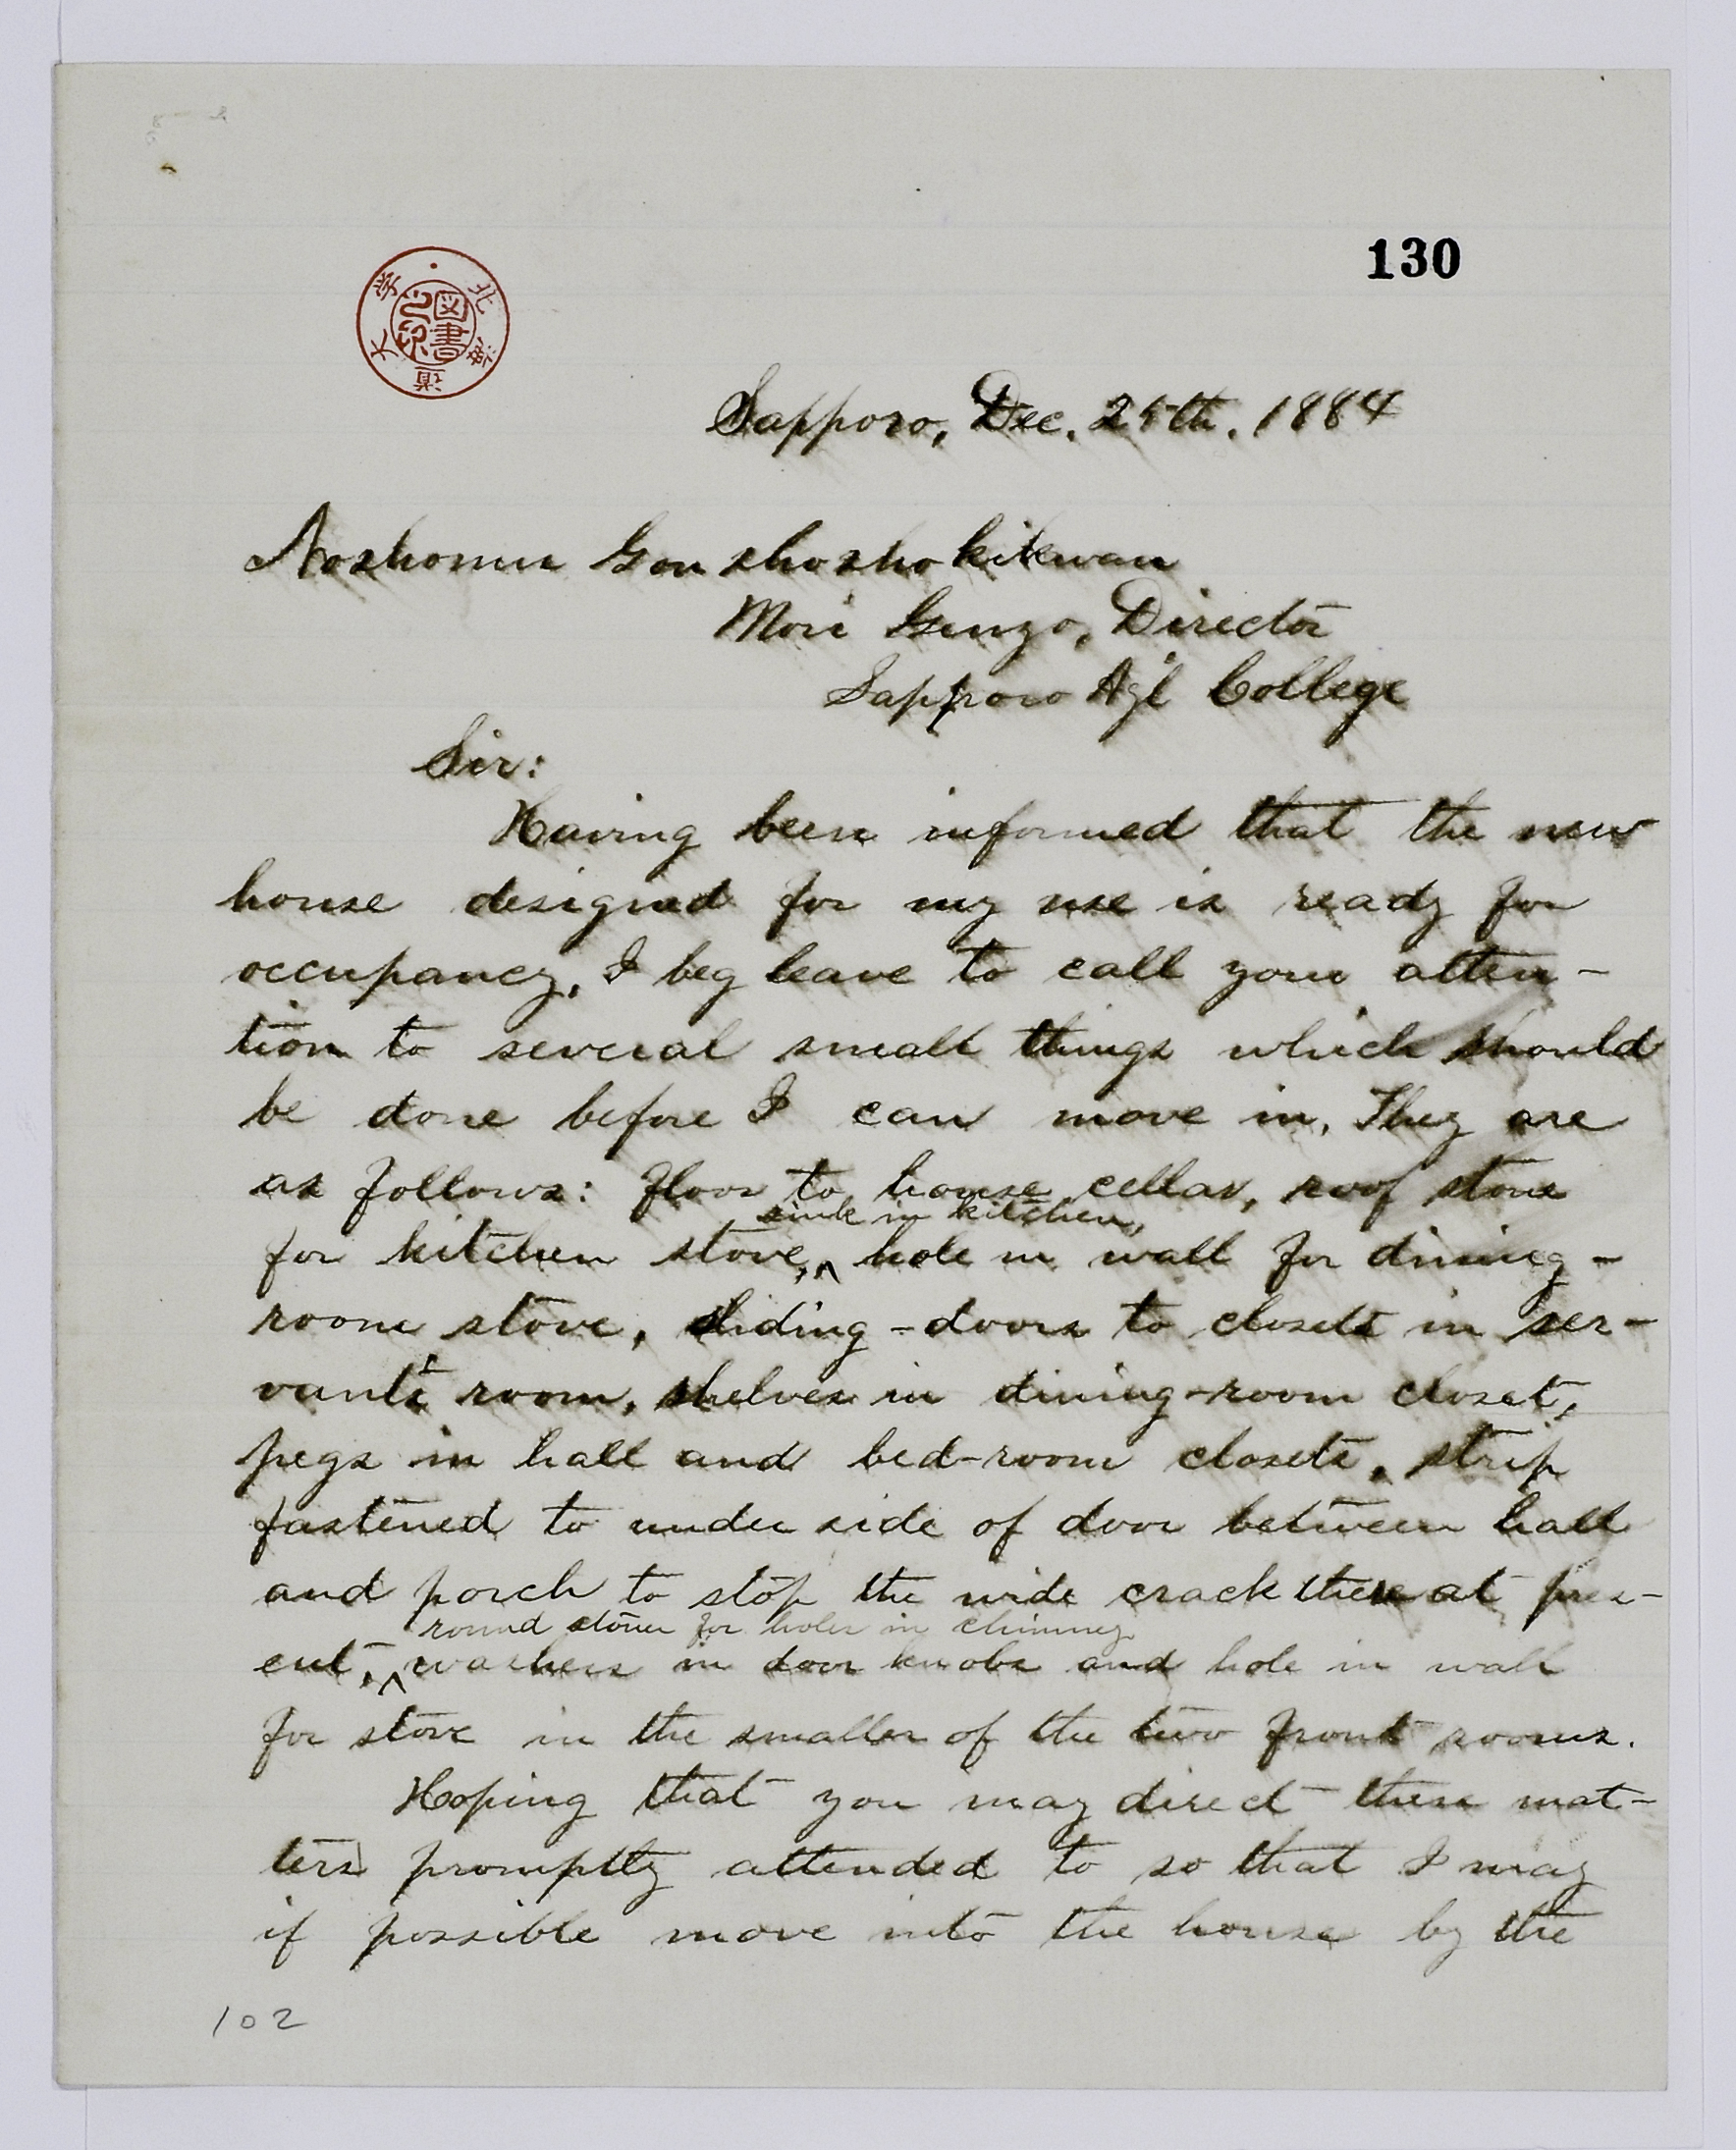 130
北海道大学
図書之印
Sapporo, Dec. 25th. 1884
Noshomu Gon shoshokikwan
Mori Genzo, Director
Sapporo Agl College
Sir:
Having been informed that the new
house designed for my use is ready for
occupancy, I beg leave to call your atten-
tion to several small things which should
be done before I can move in. They are
as follows: floor to house cellar, roof stone
sink in kitchen,
for kitchen stove, ^ hole in wall for dining-
room stove, sliding-doors to closets in ser-
vant's room, shelves in dining-room closet,
pegs in hall and bed-room closets, strip
fastened to under side of door between hall
and porch to stop the wide crack there at pres-
round stones for holes in chimney
ent, ^ washers in door knobs and hole in wall
for stove in the smaller of the two front rooms.
Hoping that you may direct these mat-
ters promptly attended to so that I may
if possible move into the house by the
102